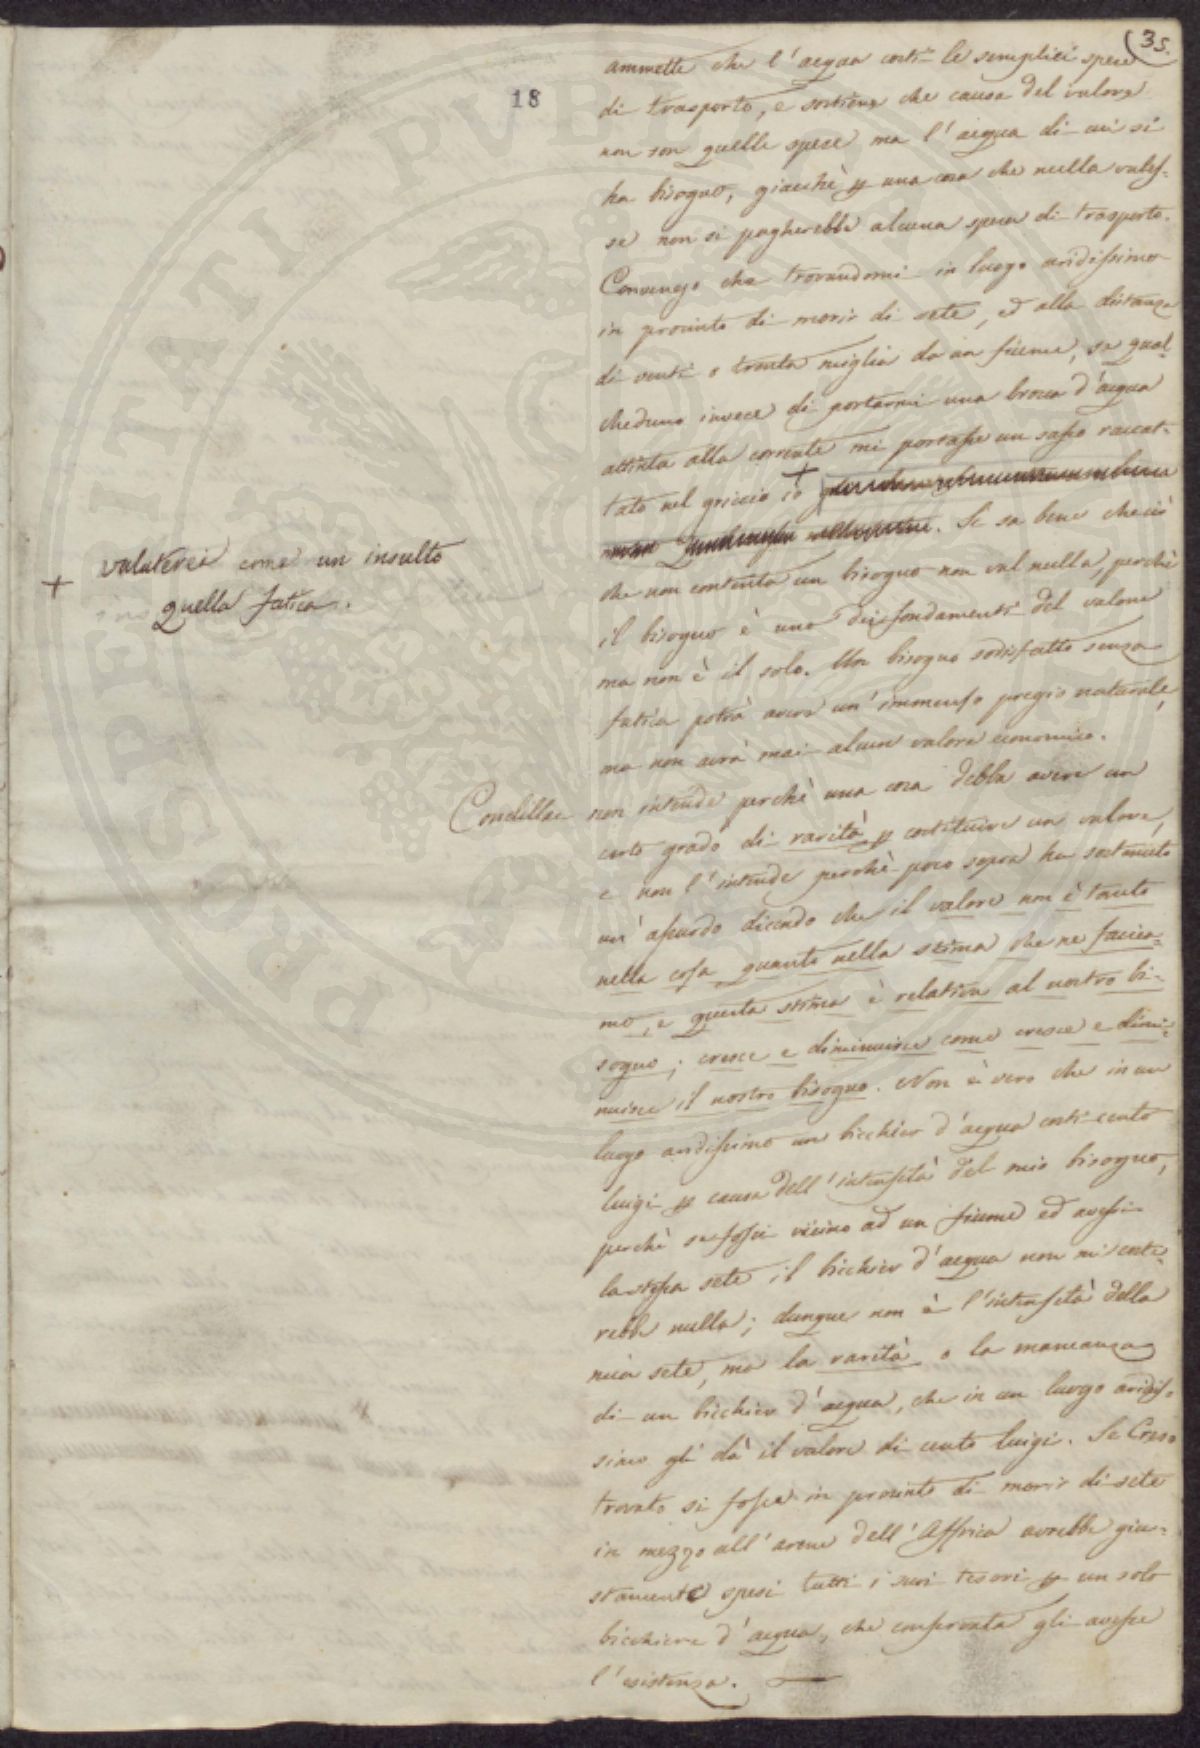 35.
18
ammette che l'acqua costi le semplici spese
di trasporto, e sostiene che causa del valore
non son quelle spese ma l'acqua di cui si
ha bisogno, giacchè p una cosa che nulla valeſ-
se non si pagherebbe alcuna spesa di trasporto.
Convengo che trovandomi in luogo aridiſsimo
in procinto di morir di sete, ed alla distanza
di venti o trenta miglia da un fiume, se qual-
cheduno invece di portarmi una brocca d'acqua
attinta alla corrente mi portaſse un saſso raccat-
tato nel greccio io +
. Si sa bene che ciò
+ valuterei come un insulto
quella fatica.
che non contenta un bisogno non val nulla, perchè
il bisogno è uno dei fondamenti del valore
ma non è il solo. Un bisogno sodisfatto senza
fatica potrà avere un'immenſo pregio naturale,
ma non avrà mai alcun valore economico.
Condillac non intende perchè una cosa debba avere un
certo grado di rarità p costituire un valore,
e non l'intende perchè poco sopra ha sostenuto
un' aſsurdo dicendo che il valore non è tanto
nella coſa quanto nella stima che ne faccia-
mo, e questa stima è relativa al nostro bi-
sogno; cresce e diminuisce come cresce e dimi-
nuisce il nostro bisogno. Non è vero che in un
luogo aridiſsimo un bicchier d'acqua costi cento
luigi p causa dell'intenſità del mio bisogno,
perchè se foſsi vicino ad un fiume ed aveſsi
la steſsa sete il bicchier d'acqua non mi coste-
rebbe nulla; dunque non è l'intenſità della
mia sete, ma la rarità o la mancanza
di un bicchier d'acqua, che in un luogo aridiſ-
simo gli dà il valore di cento luigi. Se Creso
trovato si foſse in procinto di morir di sete
in mezzo all'arene dell'Affrica avrebbe giu-
stamente spesi tutti i suoi tesori p un solo
bicchiere d'acqua, che conservata gli aveſse
l'esistenza.
PROSPERITATI PVBLICAE